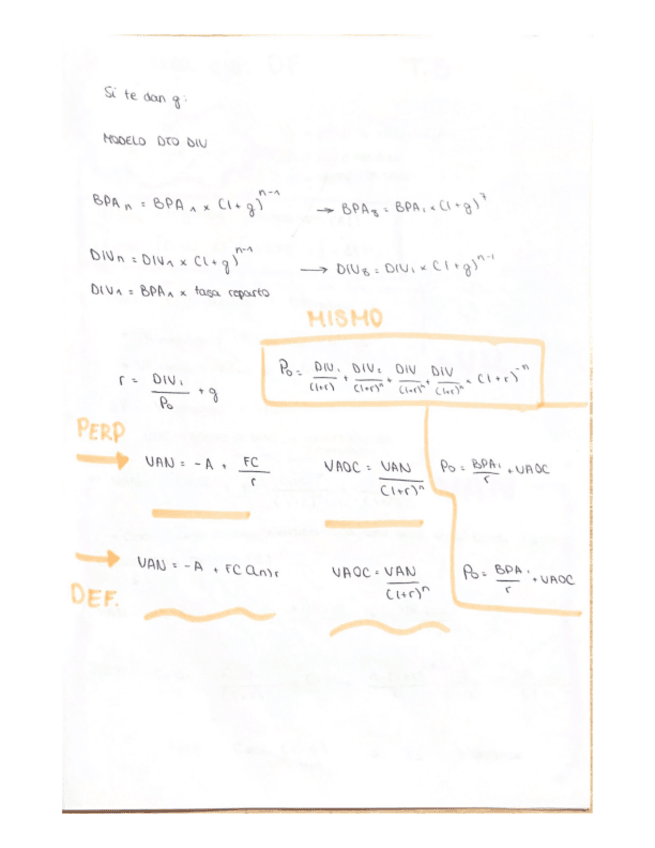 Si te dan g:
MODELO DTO DIV
BPA n = BPA 1 x (1+g)^n-1 → BPA8 = BPA1 x (1+g)^7
DIVn = DIV1 x (1+g)^n-1 → DIV8 = DIV1 x (1+g)^n-1
DIV1 = BPA1 x tasa reparto
MISMO
r = DIV1/P0 + g
P0 = DIV1/(1+r) + DIV2/(1+r)^n + DIV/(1+r)^n + DIV/(1+r)^n x (1+r)^-n
PERP
VAN = -A + FC/r VAOC = VAN/(1+r)^n P0 = BPA1/r + VAOC
DEF.
VAN = -A + FC an¬r VAOC = VAN/(1+r)^n P0 = BPA1/r + VAOC